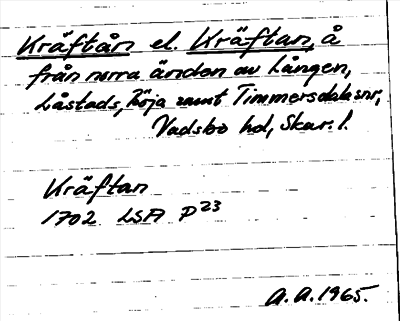 Kräftån el. Kräftan, å
från norra änden av Lången,
Låstads, Töja samt Timmersdala snr,
Vadsbo hd, Skar. l.
Kräftan
1702 LSA P23
A.A. 1965.